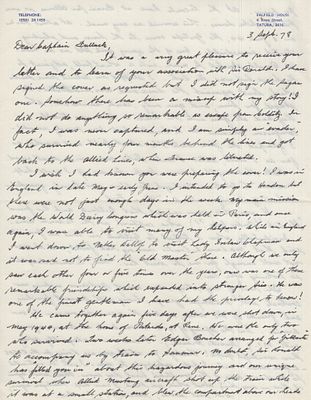 TELEPHONE:
FAIRFIELD HOUSE
TATURA, 3616
3 Sept. 78
Dear Captain Bullock,
It was a very great pleasure to receive your
letter and to learn of your association with Sir Donald. I have
signed the cover as requested but I did not sign the
one. Somehow there has been a mixup with my story! I
did not do anything so remarkable as escape from Colditz. In
fact, I was never captured, and I am simply an evader,
who survived nearly four months behind the lines and got
back to the Allied lines, when was liberated.
I wish I had known you were preparing the cover! I was in
England in late May - early June. I intended to go to Hendon but
there were not just enough days in the week. My main mission
was the World Dairy Congress which was held in Paris, and once
again, I was able to visit many of my helpers. While in England
I went down to to visit Lady
it was sad not to find the Old Master there. Although we only
saw each other four or five times over the years, ours was one of those
remarkable friendships which expanded into stronger ties. He was
one of the finest gentlemen I have had the privilege to know!
We came together again five days after we were shot down, in
May 1944, at the home of We were the only two
who survived. Two weeks later Edgar arranged for
the accompanying us by train to No doubt, Sir Donald
has filled you in about this hazardous journey and our unique
survival when Allied Mustang aircraft shot up the train while
it was at a small station, and blew the compartment above our heads